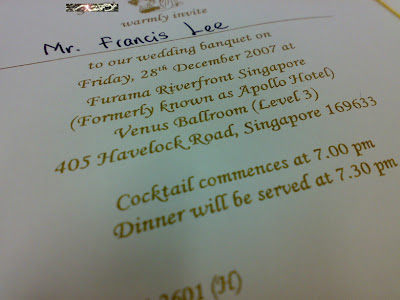 warmly invite
Mr. Francis Lee
to our wedding banquet on
Friday, 28th December 2007 at
Furama Riverfront Singapore
(Formerly known as Apollo Hotel)
Venus Ballroom (Level 3)
405 Havelock Road, Singapore 169633
Cocktail commences at 7.00 pm
Dinner will be served at 7.30 pm
3601 (H)